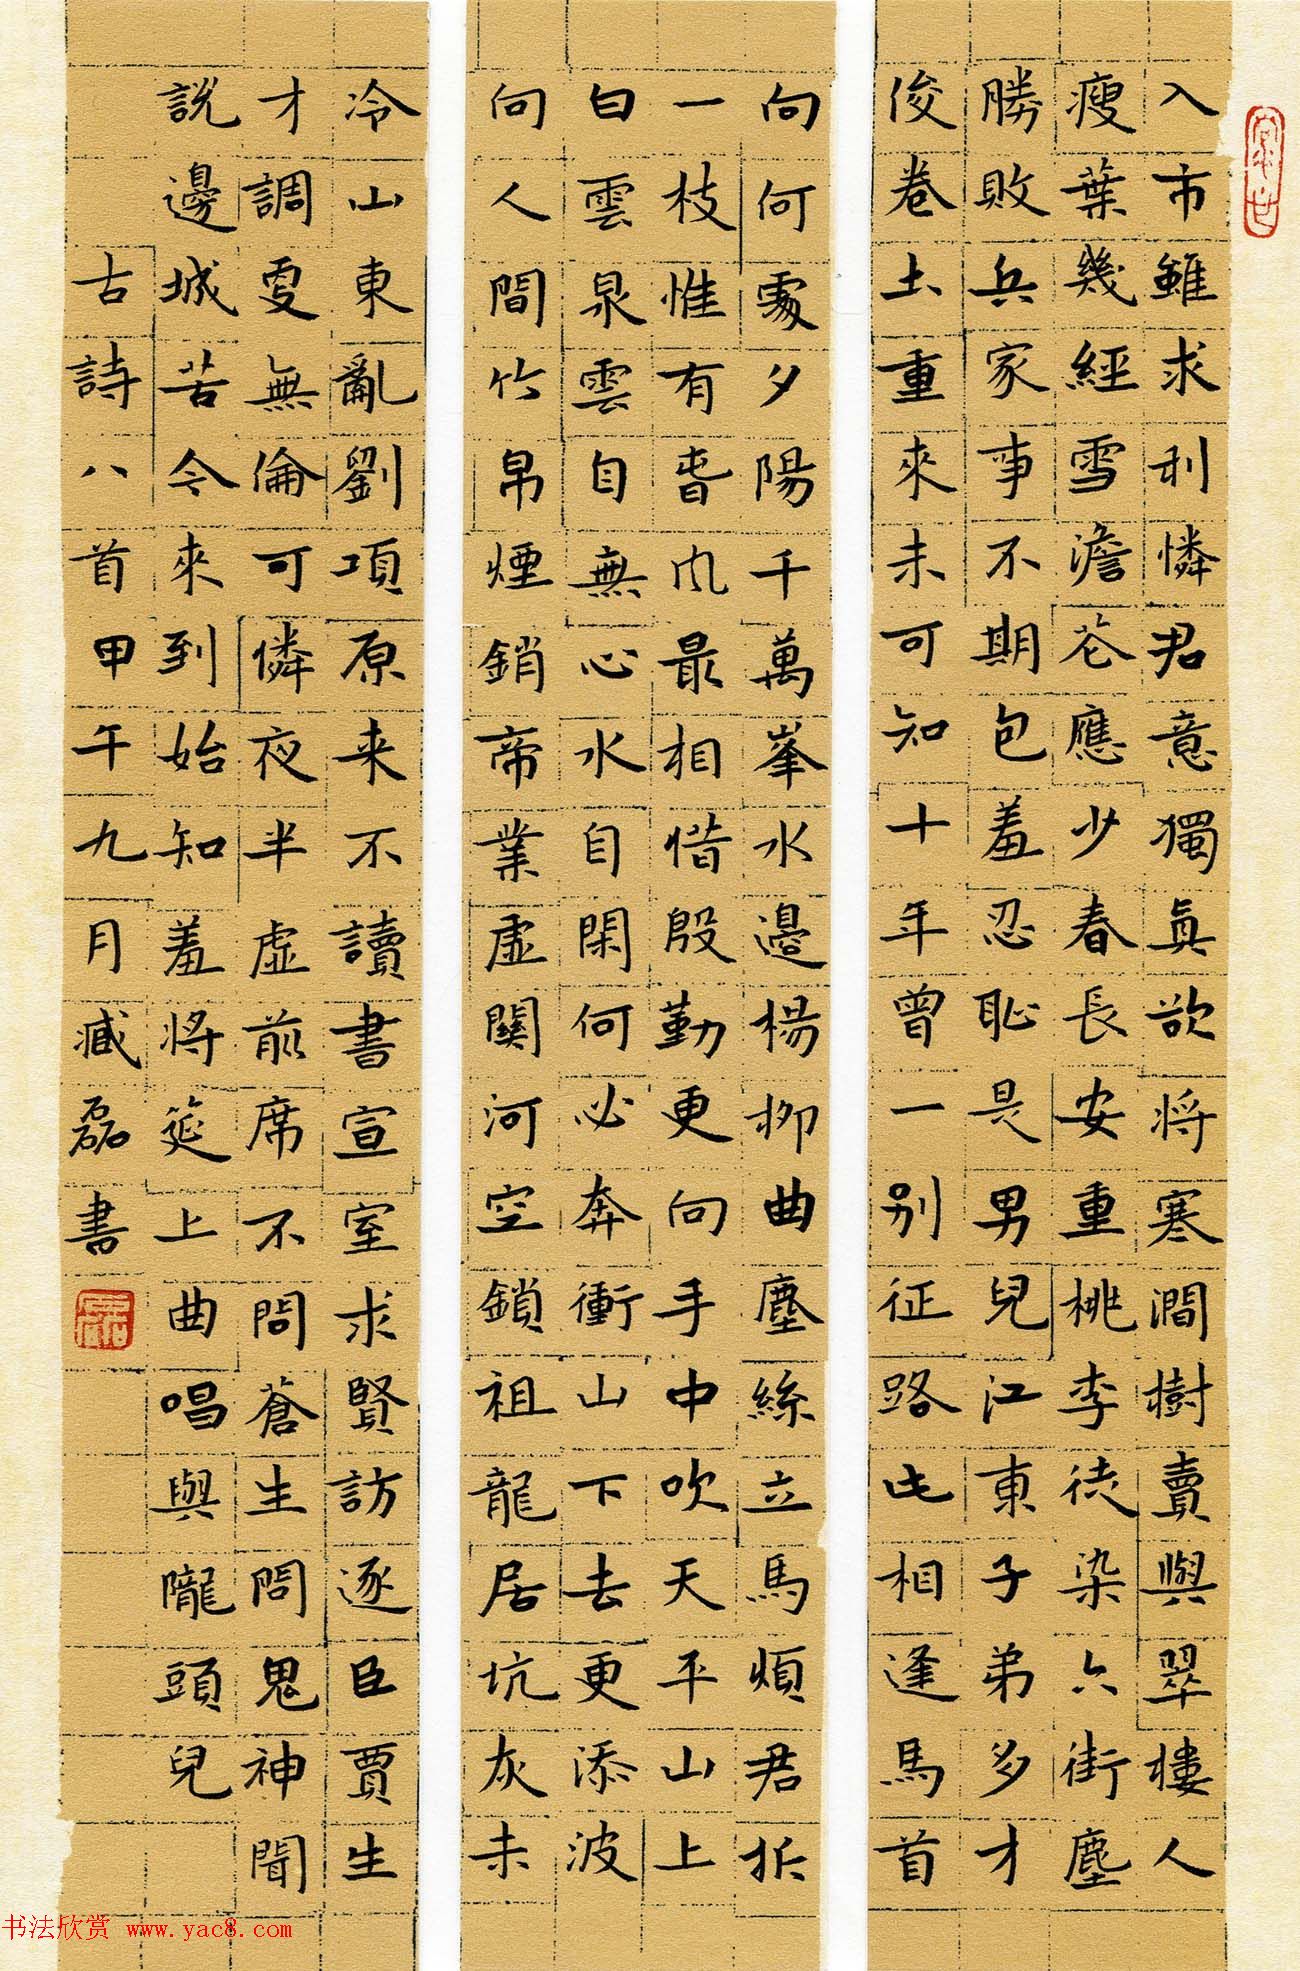 入市雖求利憐君意獨真欲將寒澗樹賣與翠樓人
瘦葉幾經雪澹花應少春長安重桃李徒染六街塵
勝敗兵家事不期包羞忍恥是男兒江東子弟多才
俊卷土重來未可知十年曾一別征路此相逢馬首
向何處夕陽千萬峯水邊楊柳曲塵絲立馬煩君折
一枝惟有春風最相惜殷勤更向手中吹天平山上
白雲泉雲自無心水自閑何必奔衝山下去更添波
向人間竹帛煙銷帝業虛關河空鎖祖龍居坑灰未
冷山東亂劉項原来不讀書宣室求賢訪逐臣賈生
才調更無倫可憐夜半虛前席不問蒼生問鬼神聞
説邊城苦今來到始知羞將筵上曲唱與隴頭兒
古詩八首甲午九月臧磊書
书法欣赏 www.yac8.com